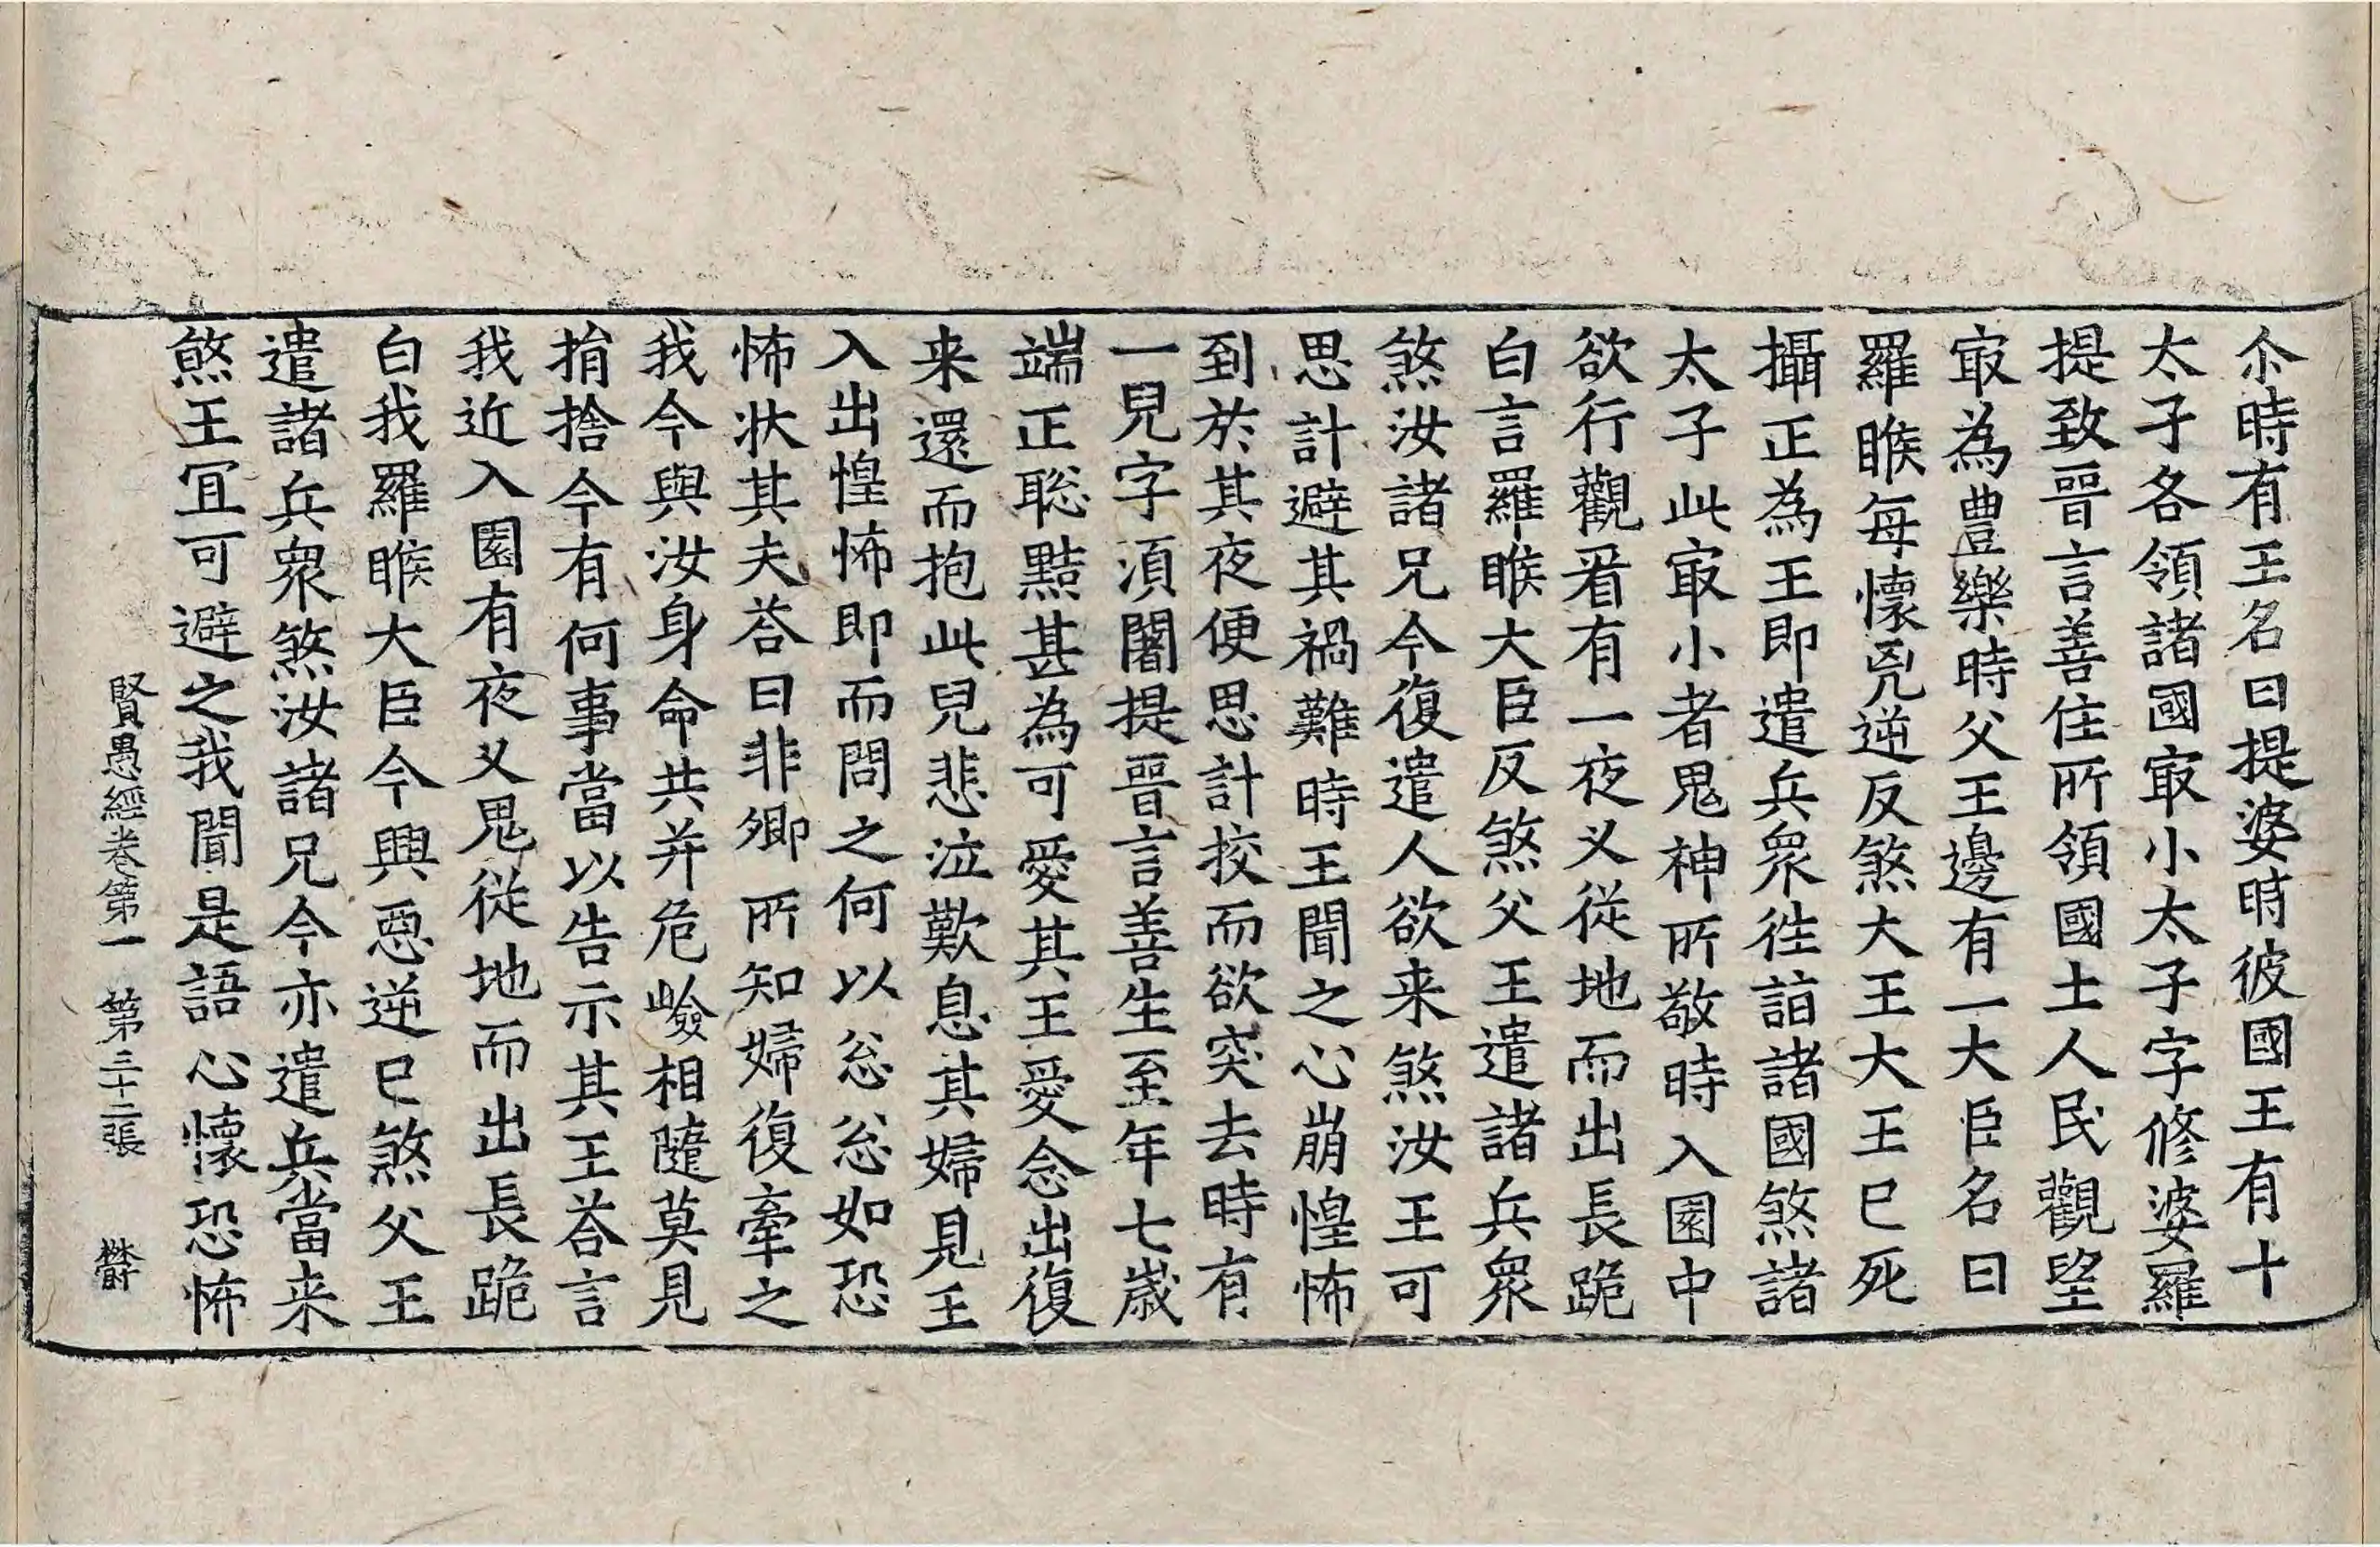 尒時有王名曰提婆時彼國王有十
太子各領諸國㝡小太子字修婆羅
提致晉言善住所領國土人民觀望
㝡為豊樂時父王邊有一大臣名曰
羅睺每懷兇逆反煞大王大王已死
攝正為王即遣兵衆徃詣諸國煞諸
太子此㝡小者鬼神所敬時入園中
欲行觀看有一夜叉從地而出長跪
白言羅睺大臣反煞父王遣諸兵衆
煞汝諸兄今復遣人欲来煞汝王可
思計避其禍難時王聞之心崩惶怖
到於其夜便思計挍而欲突去時有
一兒字湏闍提晉言善生至年七歳
端正聡黠甚為可愛其王愛念出復
来還而抱此兒悲泣歎息其婦見王
入出惶怖即而問之何以忩忩如恐
怖状其夫荅曰非卿所知婦復牽之
我今與汝身命共并危嶮相隨莫見
捐捨今有何事當以告示其王荅言
我近入園有夜叉鬼從地而出長跪
白我羅睺大臣今興惡逆已煞父王
遣諸兵衆煞汝諸兄今亦遣兵當来
煞王冝可避之我聞是語心懷恐怖
賢愚經卷第一　第三十二張　欝